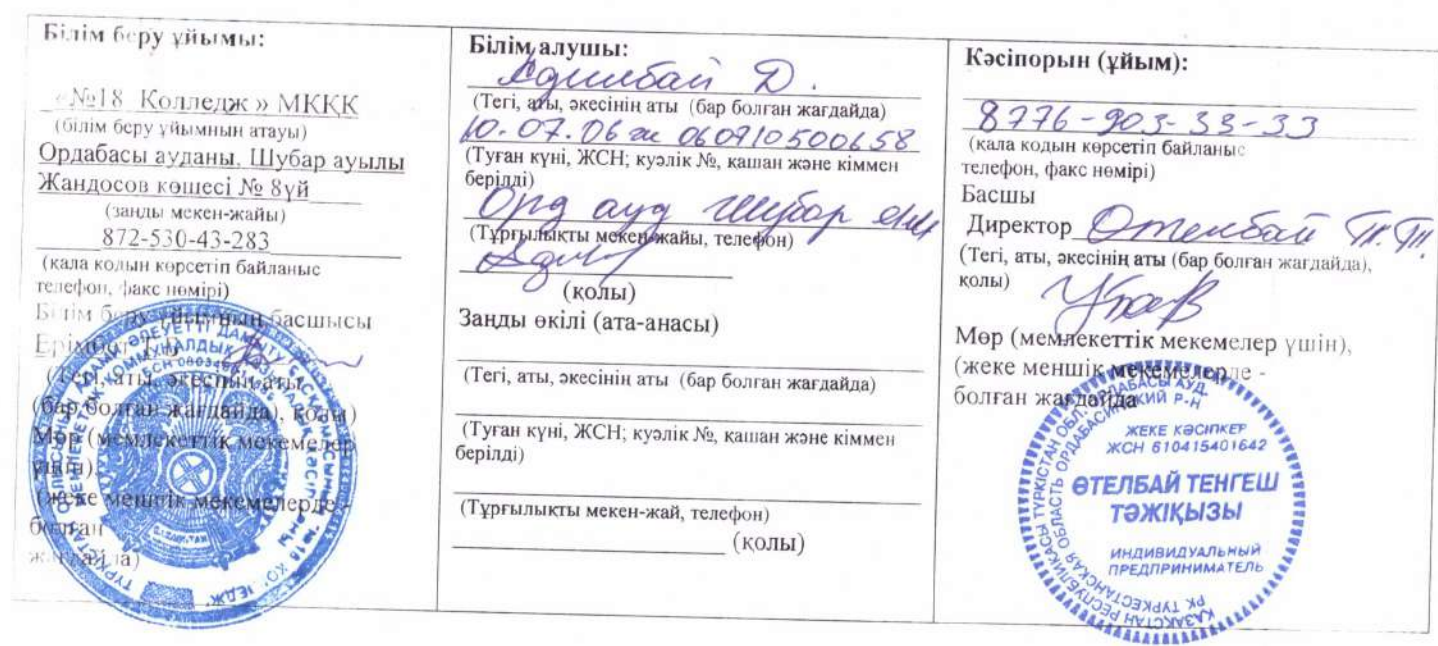 Білім беру ұйымы:
«№18 Колледж » МКҚК
(білім беру ұйымнын атауы)
Ордабасы ауданы, Шубар ауылы
Жандосов көшесі № 8үй
(занды мекен-жайы)
872-530-43-283
(кала кодын көрсетіп байланыс
телефон, факс нөмірі)
Білім беру ұйымның басшысы
Ерімбет
(Тегі, аты, әкесінің аты
(бар болған жағдайда), қолы)
Мөр (мемлекеттік мекемелер
үшін),
(жеке меншік мекемелерде -
болған
жағдайда)
Білім алушы:
Әдилбай Д.
(Тегі, аты, әкесінің аты (бар болған жағдайда)
10.07.06 ж 060710500658
(Туған күні, ЖСН; куәлік №, қашан және кіммен
берілді)
Орд ауд Шубар
(Тұрғылықты мекен-жайы, телефон)
(қолы)
Заңды өкілі (ата-анасы)
(Тегі, аты, әкесінің аты (бар болған жағдайда)
(Туған күні, ЖСН; куәлік №, қашан және кіммен
берілді)
(Тұрғылықты мекен-жай, телефон)
(қолы)
Кәсіпорын (ұйым):
8776-903-33-33
(кала кодын көрсетіп байланыс
телефон, факс нөмірі)
Басшы
Директор Отелбай Т.Т.
(Тегі, аты, әкесінің аты (бар болған жағдайда),
қолы)
Мөр (мемлекеттік мекемелер үшін),
(жеке меншік мекемелерде -
болған жағдайда
ЖЕКЕ КӘСІПКЕР
ЖСН 610415401642
ӨТЕЛБАЙ ТЕНГЕШ
ТӘЖІҚЫЗЫ
ИНДИВИДУАЛЬНЫЙ
ПРЕДПРИНИМАТЕЛЬ
ҚАЗАҚСТАН РЕСПУБЛИКАСЫ ТҮРКІСТАН ОБЛ. ОРДАБАСЫ АУД.
РК ТУРКЕСТАНСКАЯ ОБЛАСТЬ ОРДАБАСИНСКИЙ Р-Н